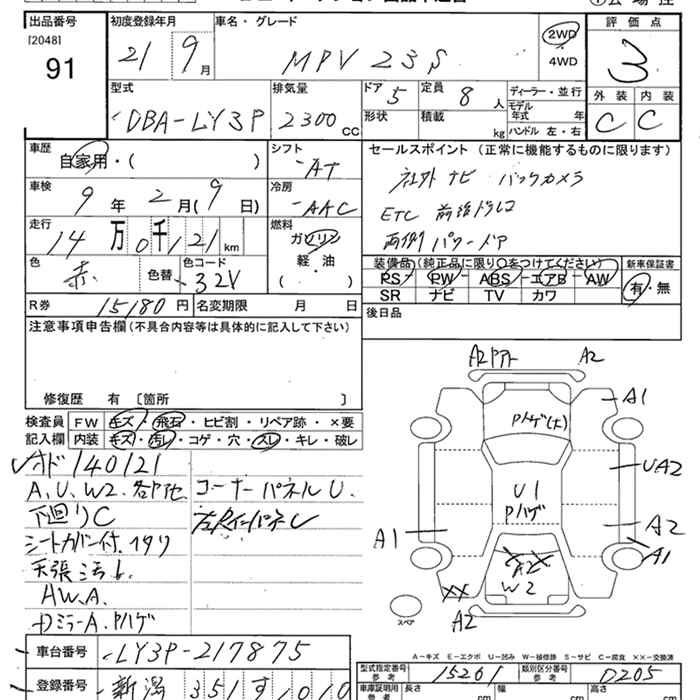 出品番号
[2048]
91
初度登録年月
21 9月
車名・グレード
MPV 23S
2WD
4WD
評価点
3
外装 内装
C C
型式
DBA-LY3P
排気量
2300 CC
ドア 5
形状
定員 8人
積載 kg
ディーラー・並行
モデル年式 年
ハンドル 左・右
車歴
自家用・( )
シフト
AT
セールスポイント (正常に機能するものに限ります)
社外ナビ バックカメラ
ETC 前後ドラレコ
両側パワードア
車検
9年 2月 (9日)
冷房
AAC
走行
14万0千121km
燃料
ガソリン
軽・油
( )
色
赤
色替
色コード
32V
装備品 (純正品に限り○をつけてください)
PS PW ABS エアB AW
SR ナビ TV カワ
新車保証書
有・無
R券 15180円
名変期限 月 日
後日品
注意事項申告欄 (不具合内容等は具体的に記入して下さい)
修復歴 有 [箇所 ]
検査員記入欄
FW キズ・飛石・ヒビ割・リペア跡・×要
内装 キズ・汚れ・コゲ・穴・スレ・キレ・破レ
オド140121
A、U、W2、各タ他
下廻りC
シートカバー付、1タリ
天張汚れ
AW.A
Dミラー A、Pハゲ
コーナーパネルU
A2 Pアト
A2
A1
Pハゲ(大)
UA2
U1
Pハゲ
A1
A2
A1
A2
W2
XX
A2
スペア
A-キズ E-エクボ U-凹み W-補修跡 S-サビ C-腐食 XX-交換済
車台番号
LY3P-217875
登録番号
新潟 351 す 1010
型式指定番号
参考
15261
類別区分番号
参考
D205
車庫証明用
参考
長さ cm
幅 cm
高さ cm